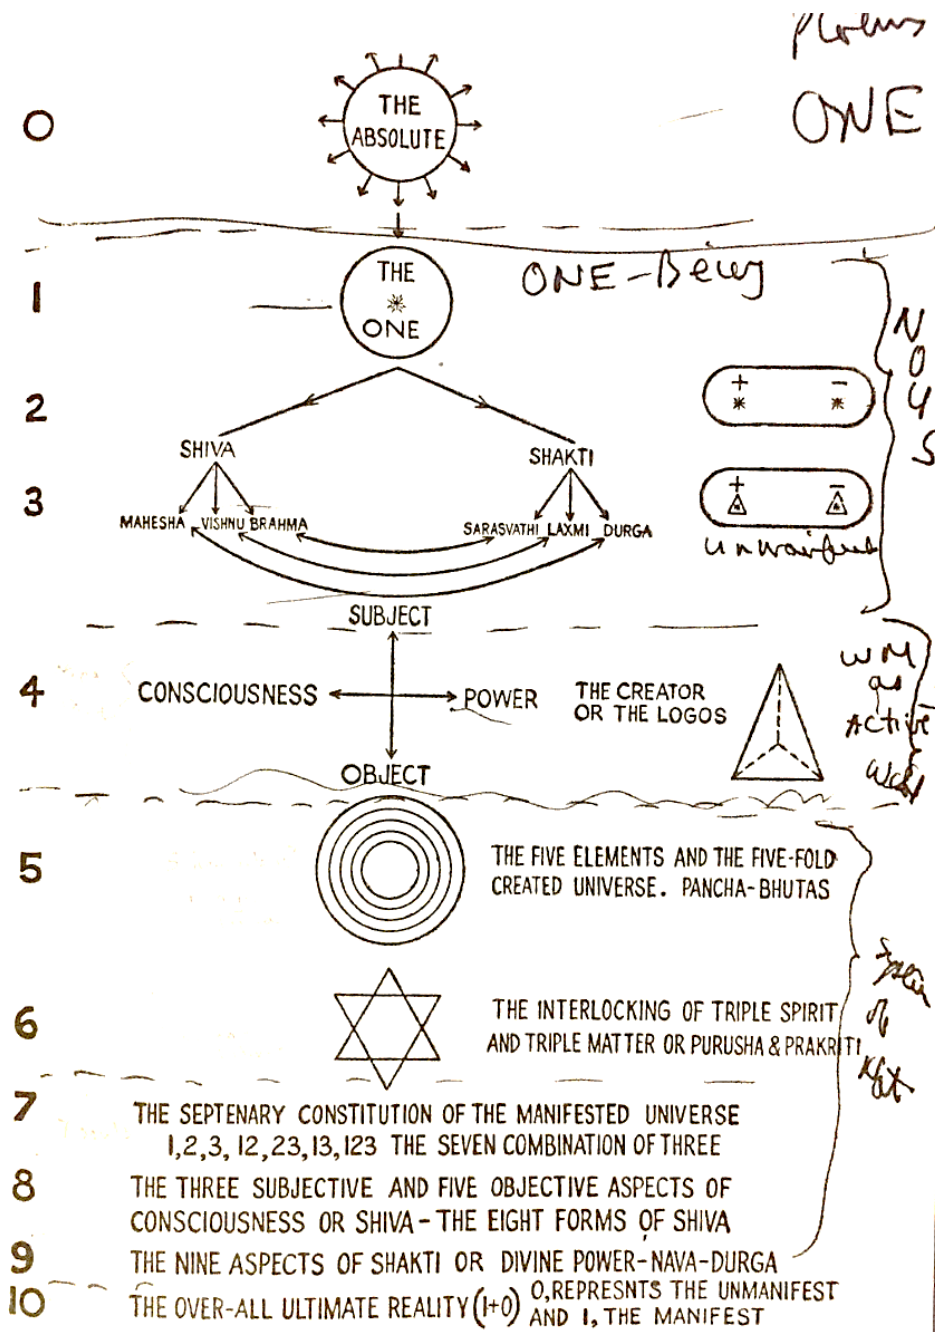 ONE
0
THE
ABSOLUTE
1
THE
ONE
ONE-Being
NOUS
2
+ −
SHIVA
SHAKTI
3
+ −
MAHESHA VISHNU BRAHMA
SARASVATHI LAXMI DURGA
SUBJECT
4
CONSCIOUSNESS
POWER
THE CREATOR
OR THE LOGOS
OBJECT
as
Active
5
THE FIVE ELEMENTS AND THE FIVE-FOLD
CREATED UNIVERSE. PANCHA-BHUTAS
6
THE INTERLOCKING OF TRIPLE SPIRIT
AND TRIPLE MATTER OR PURUSHA & PRAKRITI
of
7
THE SEPTENARY CONSTITUTION OF THE MANIFESTED UNIVERSE
1,2,3, 12,23,13,123 THE SEVEN COMBINATION OF THREE
8
THE THREE SUBJECTIVE AND FIVE OBJECTIVE ASPECTS OF
CONSCIOUSNESS OR SHIVA-THE EIGHT FORMS OF SHIVA
9
THE NINE ASPECTS OF SHAKTI OR DIVINE POWER-NAVA-DURGA
10
THE OVER-ALL ULTIMATE REALITY (1+0) 0,REPRESNTS THE UNMANIFEST
AND 1, THE MANIFEST